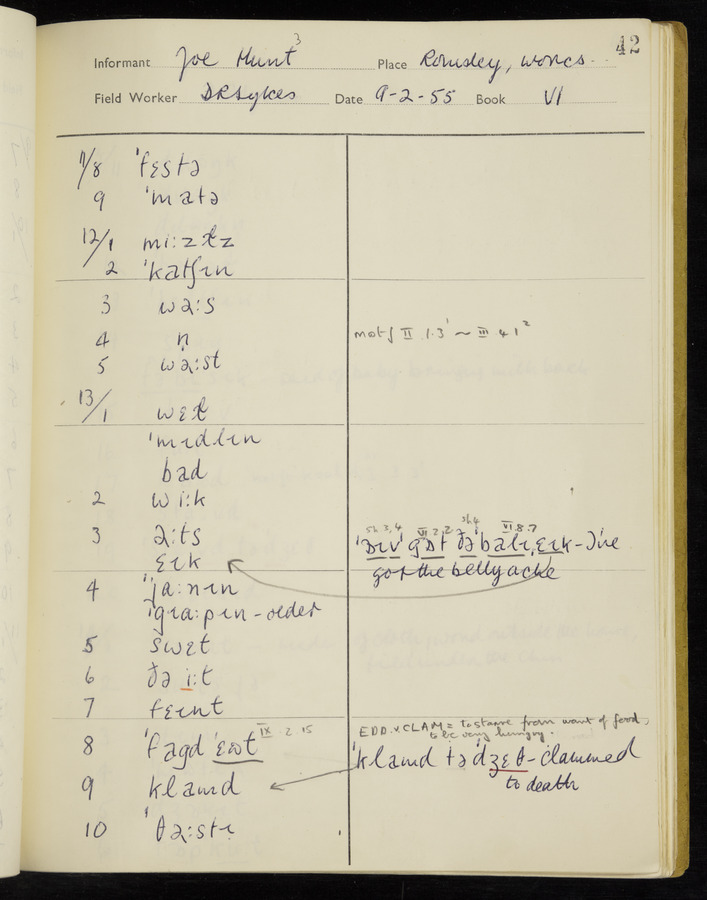 42
Informant Joe Hunt³ Place Romsley, Worcs.
Field Worker DRSykes Date 9-2-55 Book VI
11/8 ˈfɛstə
9 ˈmatə
12/1 mi:zɫz
2 ˈkatʃɪn
3 wə:s
4 n
5 wə:st
mat of II .1.3¹ ~ III 4 1²
13/1 wɛɫ
ˈmɪdlɪn
bad
2 wi:k
3 ə:ts
ɛɪk
sh 3, 4 VI 2.2 sh 4 VI.8.7
ˈɒɪv ˈgɒt ðə ˈbalɪ,ɛɪk - I've
got the belly ache
4 ˈja:nɪn
ˈgɹa:pɪn - older
5 swɛt
6 ðə i:t
7 fɛɪnt
8 ˈfagd ˈɛʊt IX .2.15
EDD.v.CLAM = to starve from want of food,
to be very hungry.
9 klamd
ˈklamd tə ˈdʒɛθ - clammed
to death
10 ˈθə:stɪ